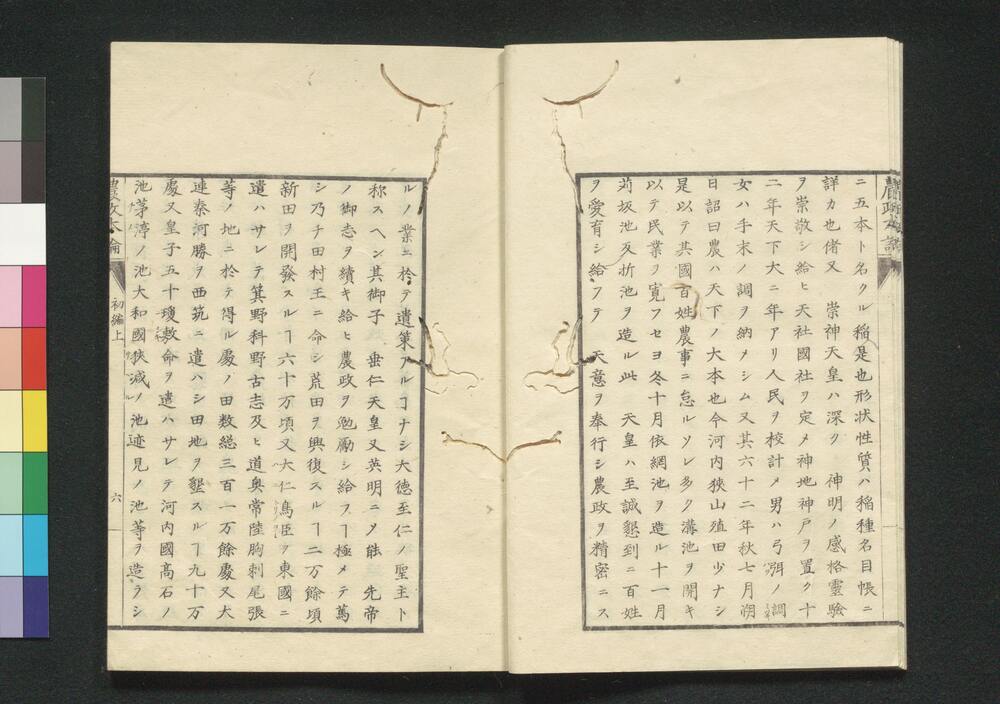 ニ五本ト名クル稲是也形状性質ハ稲種名目帳ニ
詳カ也偖又 崇神天皇ハ深ク 神明ノ感格靈驗
ヲ崇敬シ給ヒ天社國社ヲ定メ神地神戸ヲ置ク十
二年天下大ニ年アリ人民ヲ校計メ男ハ弓弭ノ調
女ハ手末ノ調ヲ納メシム又其六十二年秋七月朔
日詔曰農ハ天下ノ大本也今河内狹山殖田少ナシ
是以テ其國百姓農事ニ怠ルソレ多ク溝池ヲ開キ
以テ民業ヲ寛フセヨ冬十月依網池ヲ造ル十一月
苅坂池反折池ヲ造ル此 天皇ハ至誠懇到ニ百姓
ヲ愛育シ給フテ 天意ヲ奉行シ農政ヲ精密ニス
ルノ業ニ於テ遺策アルヿナシ大德至仁ノ聖主ト
称スヘシ其御子 垂仁天皇又英明ニシテ能 先帝
ノ御志ヲ續キ給ヒ農政ヲ勉勵シ給フヿ極メテ篤
シ乃チ田村王ニ命シ荒田ヲ興復スルヿ二万餘頃
新田ヲ開發スルヿ六十万頃又大仁鳥臣ヲ東國ニ
遣ハサレテ箕野科野古志及ヒ道奥常陸胸刺尾張
等ノ地ニ於テ得ル處ノ田数総三百一万餘處又大
連秦河勝ヲ西筑ニ遣ハシ田地ヲ墾スルヿ九十万
處又皇子五十瓊敷命ヲ遣ハサレテ河内國高石ノ
池茅渟ノ池大和國狹減ノ池迹見ノ池等ヲ造ラシ
農政本論 初編上 六